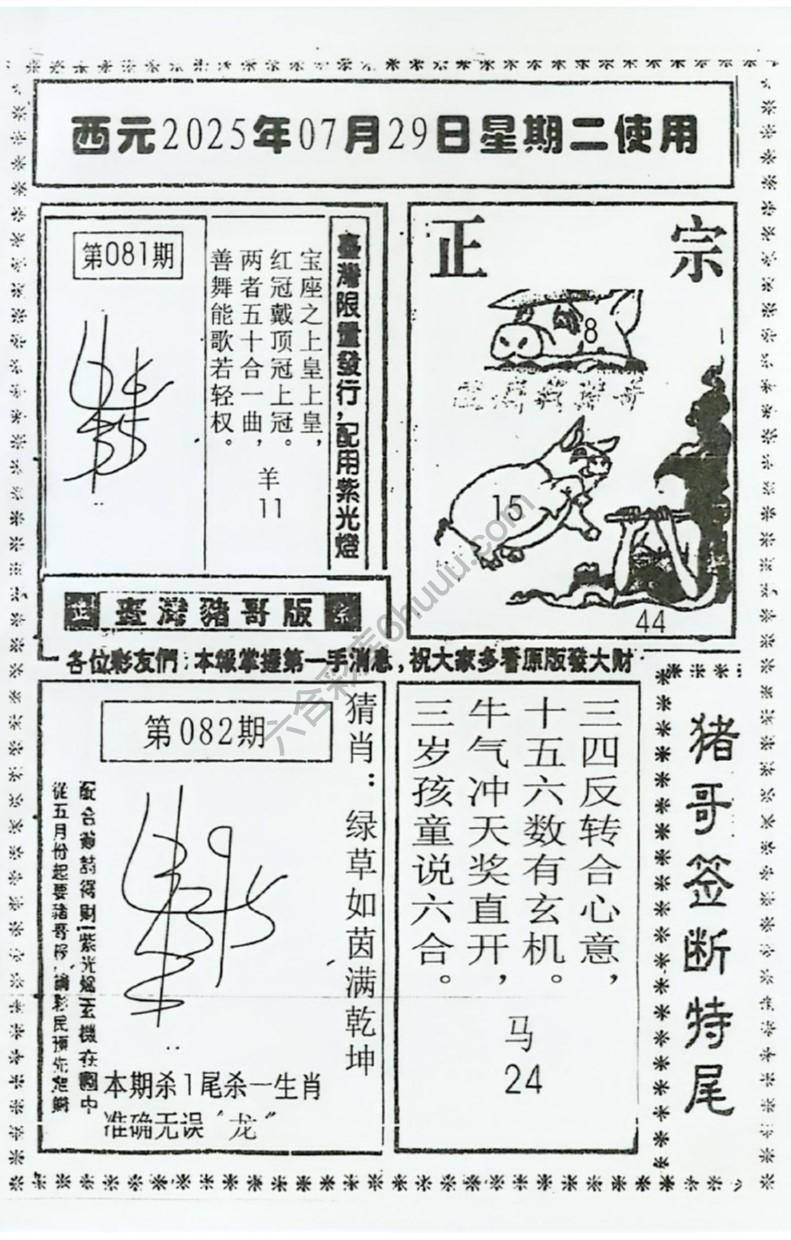 西元2025年07月29日星期二使用
第081期
臺灣限量發行,配用紫光燈
宝座之上皇上皇,
红冠戴顶冠上冠。
两者五十合一曲,
善舞能歌若轻权。
羊
11
正宗
8
15
44
正 臺灣豬哥版 宗
各位彩友們:本報掌握第一手消息,祝大家多看原版發大財
第082期
猜肖:绿草如茵满乾坤
從五月份起要豬哥報
本期杀1尾杀一生肖
准确无误“龙”
三四反转合心意,
十五六数有玄机。
牛气冲天奖直开,
三岁孩童说六合。
马
24
猪哥签断特尾
六合彩库6huuu.com